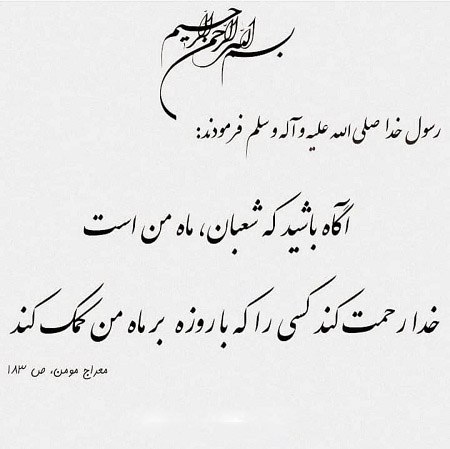 بسم الله الرحمن الرحیم
رسول خدا صلی الله علیه و آله وسلم فرمودند:
آگاه باشید که شعبان، ماه من است
خدا رحمت کند کسی را که با روزه بر ماه من کمک کند
معراج مومن، ص ۱۸۳